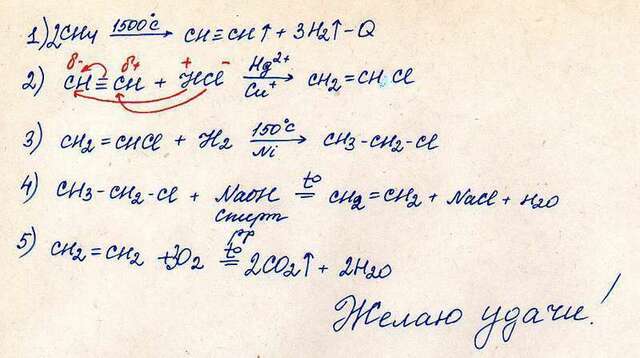 1) 2CH4 1500°C → CH≡CH↑ + 3H2↑ - Q
δ- δ+ + -
2) CH≡CH + HCl Hg2+ Cu+ → CH2=CHCl
3) CH2=CHCl + H2 150°C Ni → CH3-CH2-Cl
4) CH3-CH2-Cl + NaOH t° = CH2=CH2 + NaCl + H2O
спирт
рр
5) CH2=CH2 + 3O2 t° = 2CO2↑ + 2H2O
Желаю удачи!